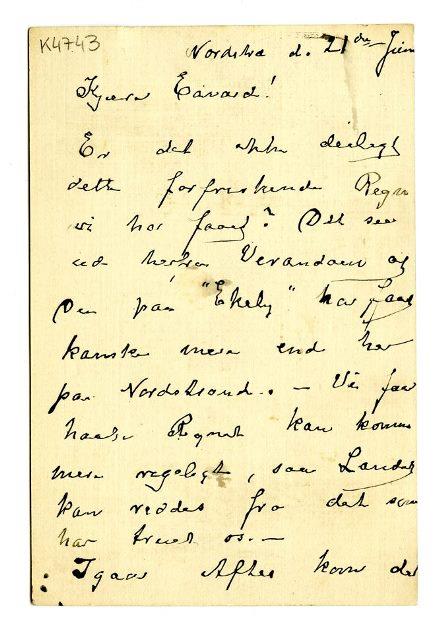 K4743
Nordstrd d. 21de Juni
Kjære Edvard!
Er det ikke deiligt
dette forfriskende Regn
vi har faaet? Det sees
ude herfra Verandaen og
Du paa "Ekely" har faaet
kanske mere end her
paa Nordstrand. – Vi faar
haabe Regnet kan komme
mere regelegt, saa Landet
kan reddes fra det som
har truet os. –
Igaar Aftes kom det